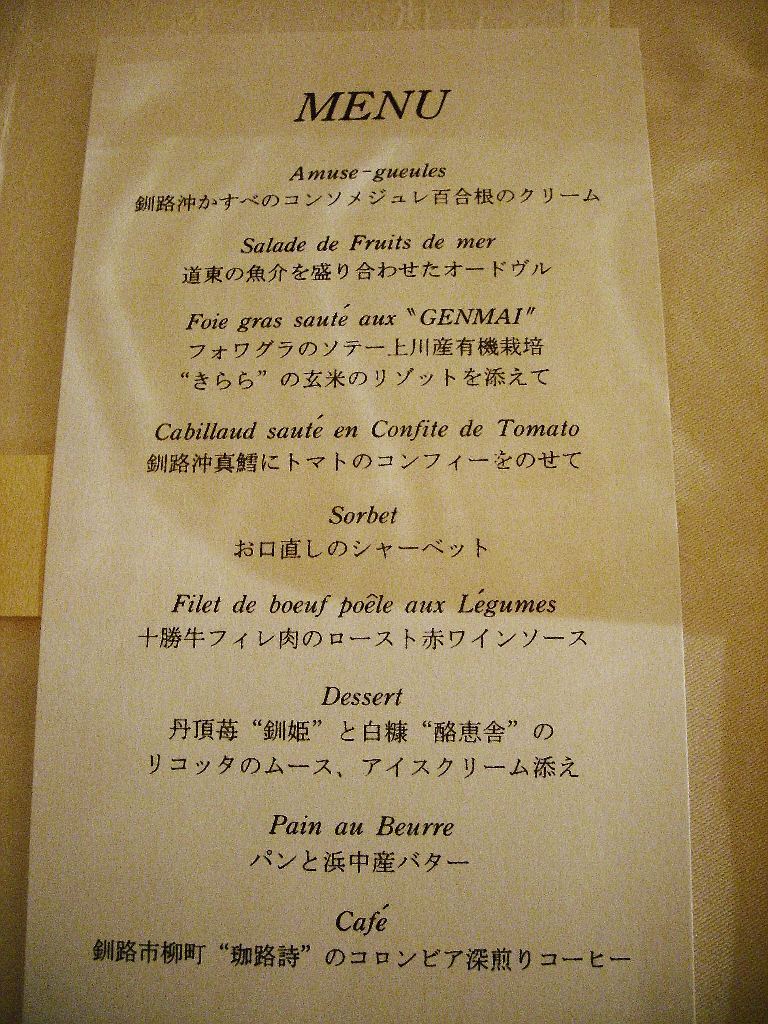 MENU
Amuse-gueules
釧路沖かすべのコンソメジュレ百合根のクリーム
Salade de Fruits de mer
道東の魚介を盛り合わせたオードヴル
Foie gras sauté aux "GENMAI"
フォワグラのソテー上川産有機栽培
“きらら”の玄米のリゾットを添えて
Cabillaud sauté en Confite de Tomato
釧路沖真鱈にトマトのコンフィーをのせて
Sorbet
お口直しのシャーベット
Filet de boeuf poêle aux Légumes
十勝牛フィレ肉のロースト赤ワインソース
Dessert
丹頂苺“釧姫”と白糠“酪恵舎”の
リコッタのムース、アイスクリーム添え
Pain au Beurre
パンと浜中産バター
Café
釧路市柳町“珈路詩”のコロンビア深煎りコーヒー